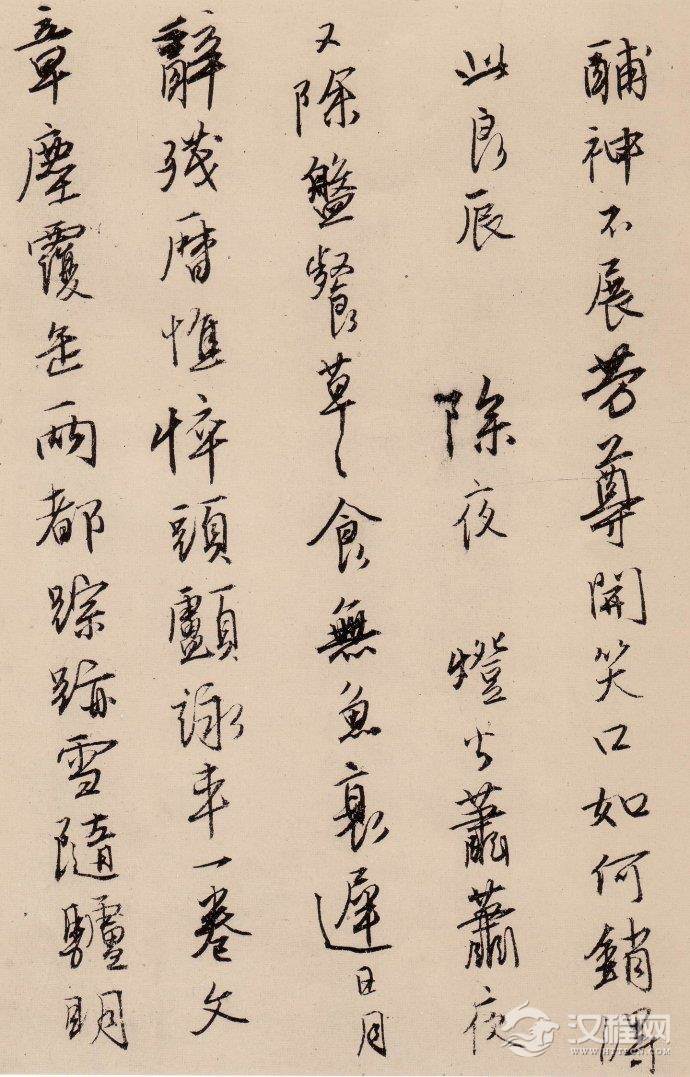 酺神不展芳尊開笑口如何銷得
此良辰 除夜 燈火蕭蕭夜
又除盤餐草〻食無魚衰遲日月
辭殘曆憔悴頭顱詠車一卷文
章塵覆缶兩都踪跡雪隨驢明
汉程网
WWW.HTTPCN.COM